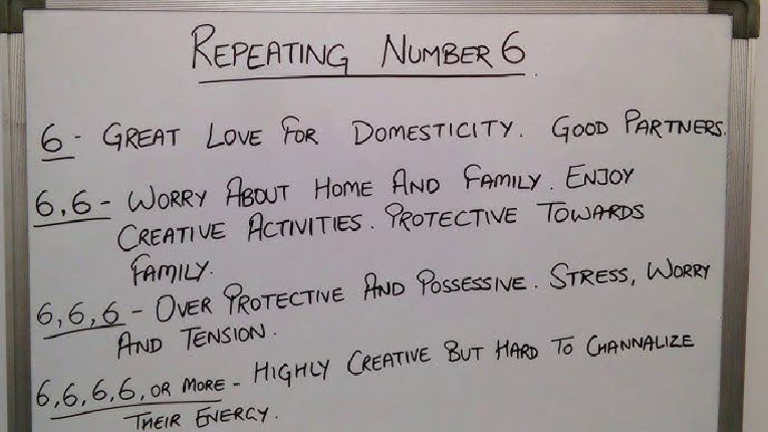 REPEATING NUMBER 6.
6 - GREAT LOVE FOR DOMESTICITY. GOOD PARTNERS.
6,6 - WORRY ABOUT HOME AND FAMILY. ENJOY
CREATIVE ACTIVITIES. PROTECTIVE TOWARDS
FAMILY.
6,6,6 - OVER PROTECTIVE AND POSSESSIVE. STRESS, WORRY
AND TENSION.
6,6,6,6, OR MORE - HIGHLY CREATIVE BUT HARD TO CHANNALIZE
THEIR ENERGY.